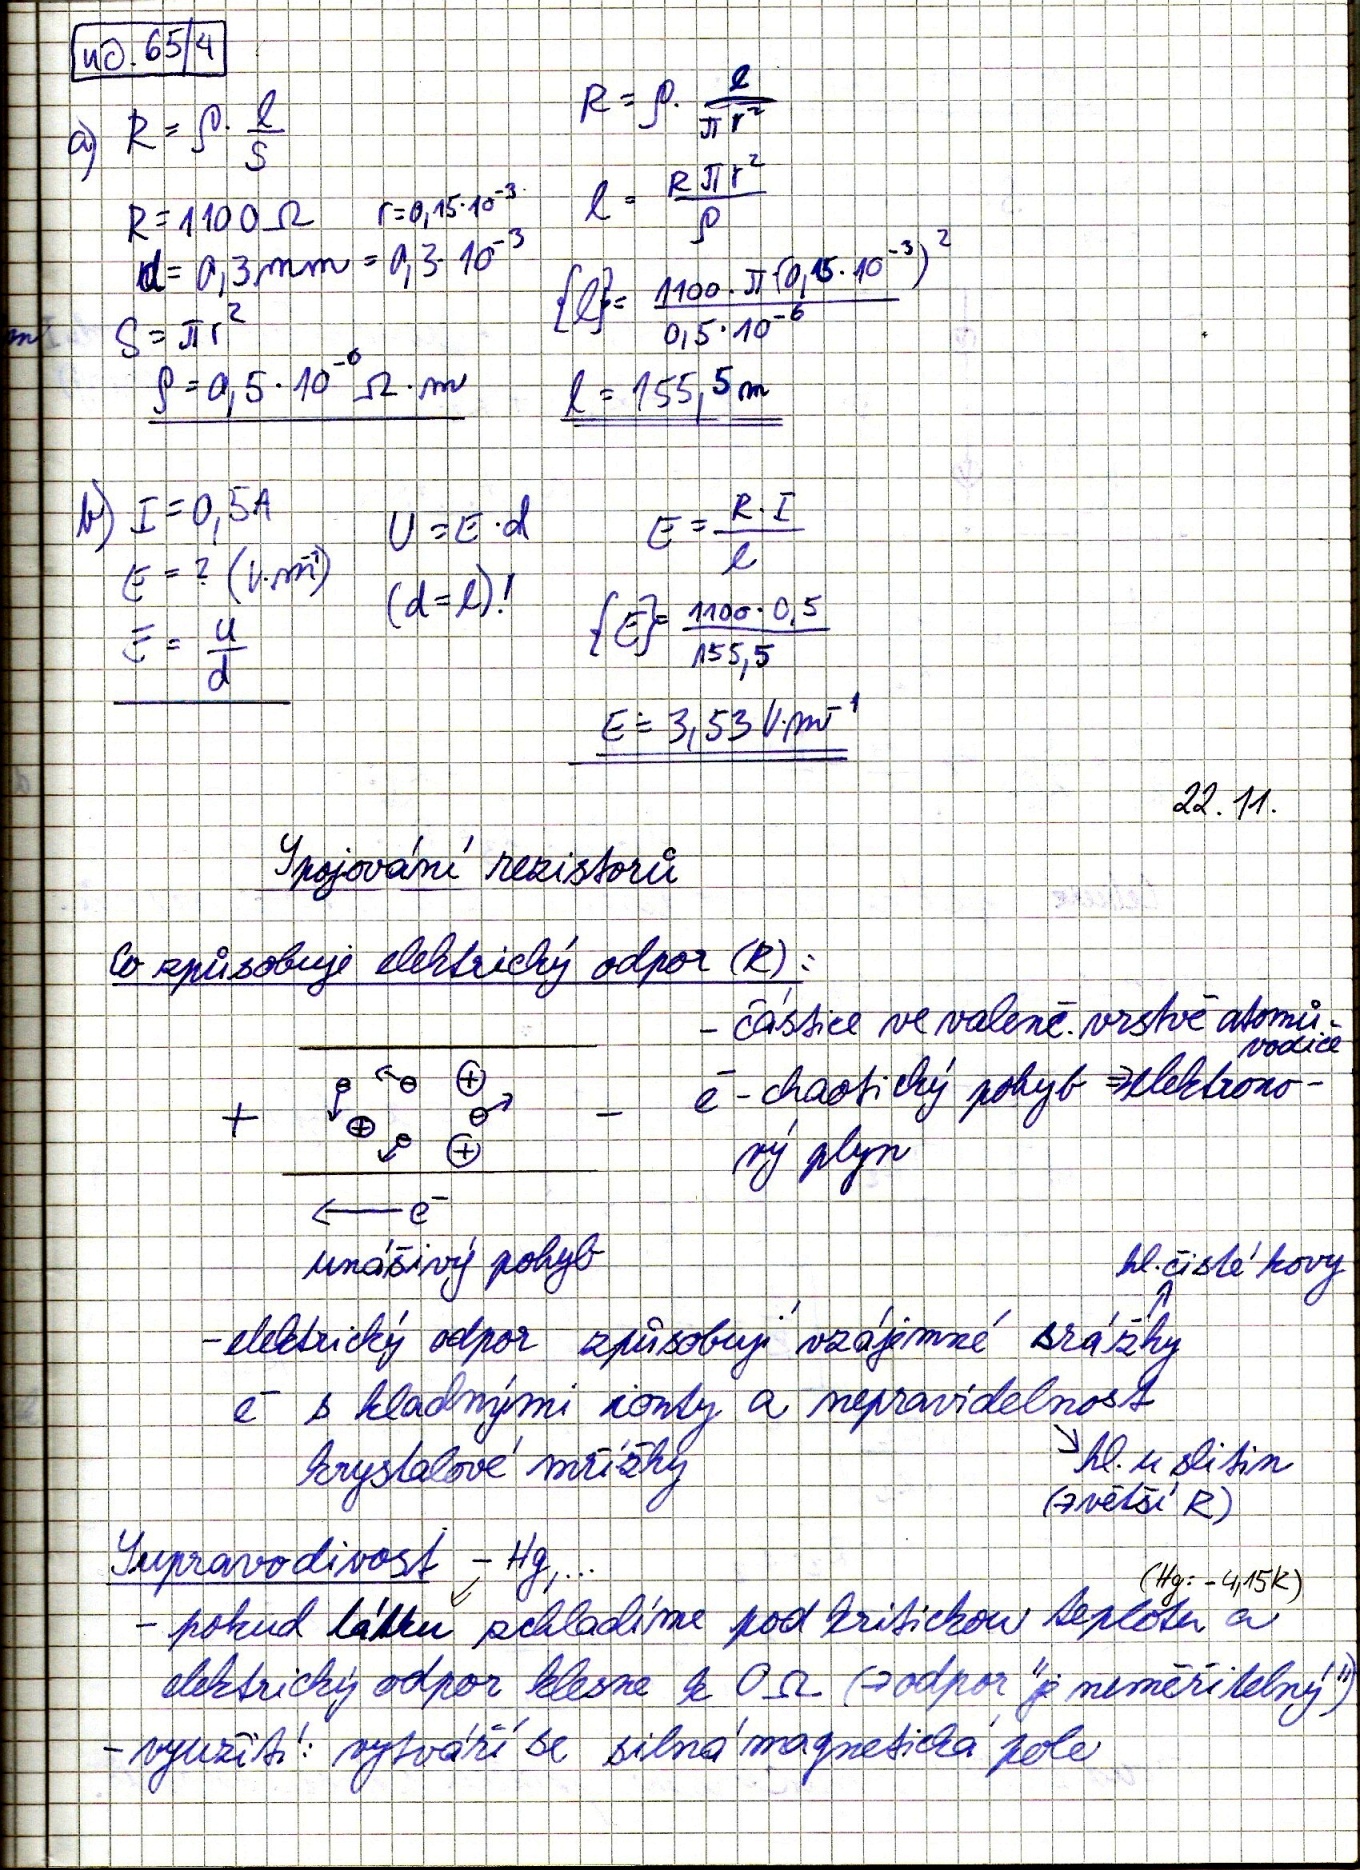 uč. 65/4
a) R = ρ · l/S
R = 1100 Ω r = 0,15·10⁻³
d = 0,3 mm = 0,3·10⁻³
S = πr²
ρ = 0,5·10⁻⁶ Ω·m
R = ρ · l/πr²
l = Rπr²/ρ
{l} = 1100·π(0,15·10⁻³)²/0,5·10⁻⁶
l = 155,5 m
b) I = 0,5A
E = ? (V·m⁻¹)
E = U/d
U = E·d
(d = l)!
E = R·I/l
{E} = 1100·0,5/155,5
E = 3,53 V·m⁻¹
22.11.
Spojování rezistorů
Co způsobuje elektrický odpor (R):
- částice ve valenč. vrstvě atomů
vodiče
e⁻ - chaotický pohyb ⇒ elektrono-
vý plyn
+ ⊖ ⊖ ⊕ ⊕ ⊖ ⊖ ⊕ -
← e⁻
unášivý pohyb
hl. čisté kovy
- elektrický odpor způsobují vzájemné srážky
e⁻ s kladnými ionty a nepravidelnost
krystalové mřížky
hl. u slitin
(→ větší R)
Supravodivost - Hg,...
(Hg: -4,15K)
- pokud látku zchladíme pod kritickou teplotu a
elektrický odpor klesne k 0Ω (→ odpor "je neměřitelný")
- využití: vytváří se silná magnetická pole